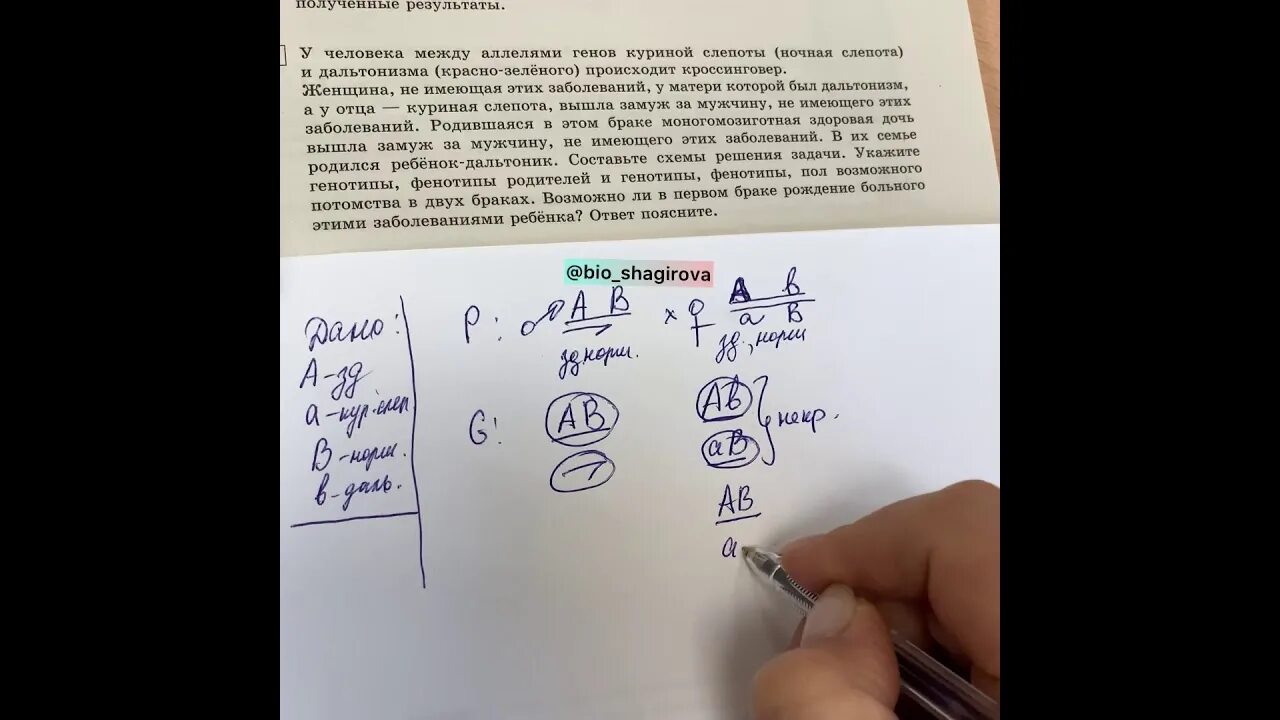 полученные результаты.
У человека между аллелями генов куриной слепоты (ночная слепота)
и дальтонизма (красно-зелёного) происходит кроссинговер.
Женщина, не имеющая этих заболеваний, у матери которой был дальтонизм,
а у отца — куриная слепота, вышла замуж за мужчину, не имеющего этих
заболеваний. Родившаяся в этом браке моногомозиготная здоровая дочь
вышла замуж за мужчину, не имеющего этих заболеваний. В их семье
родился ребёнок-дальтоник. Составьте схемы решения задачи. Укажите
генотипы, фенотипы родителей и генотипы, фенотипы, пол возможного
потомства в двух браках. Возможно ли в первом браке рождение больного
этими заболеваниями ребёнка? Ответ поясните.
@bio_shagirova
Дано:
А-зд
а-кур.слеп
В-норм.
в-даль.
Р: ♂ А В х ♀ А в
а В
зд норм. зд., норм
G: АВ Ав
аВ некр.
АВ
а